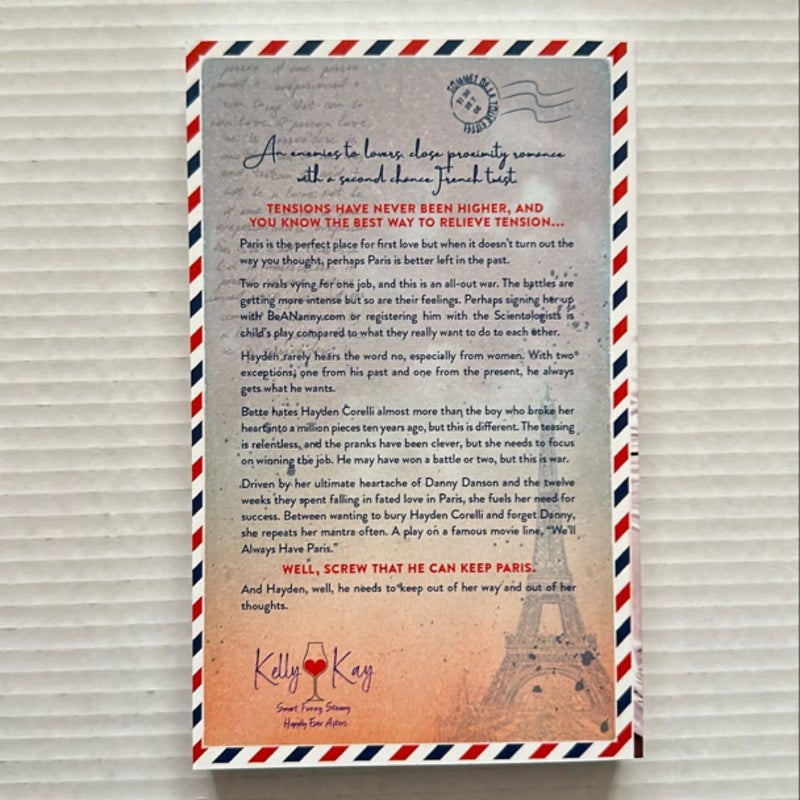 SOMMET DE LA TOUR EIFFEL
An enemies to lovers, close proximity romance
with a second chance French twist.
TENSIONS HAVE NEVER BEEN HIGHER, AND
YOU KNOW THE BEST WAY TO RELIEVE TENSION...
Paris is the perfect place for first love but when it doesn't turn out the
way you thought, perhaps Paris is better left in the past.
Two rivals vying for one job, and this is an all-out war. The battles are
getting more intense but so are their feelings. Perhaps signing her up
with BeANanny.com or registering him with the Scientologists is
child's play compared to what they really want to do to each other.
Hayden rarely hears the word no, especially from women. With two
exceptions, one from his past and one from the present, he always
gets what he wants.
Bette hates Hayden Corelli almost more than the boy who broke her
heart into a million pieces ten years ago, but this is different. The teasing
is relentless, and the pranks have been clever, but she needs to focus
on winning the job. He may have won a battle or two, but this is war.
Driven by her ultimate heartache of Danny Danson and the twelve
weeks they spent falling in fated love in Paris, she fuels her need for
success. Between wanting to bury Hayden Corelli and forget Danny,
she repeats her mantra often. A play on a famous movie line, "We'll
Always Have Paris."
WELL, SCREW THAT HE CAN KEEP PARIS.
And Hayden, well, he needs to keep out of her way and out of her
thoughts.
Kelly Kay
Smart Funny Steamy
Happily Ever Afters